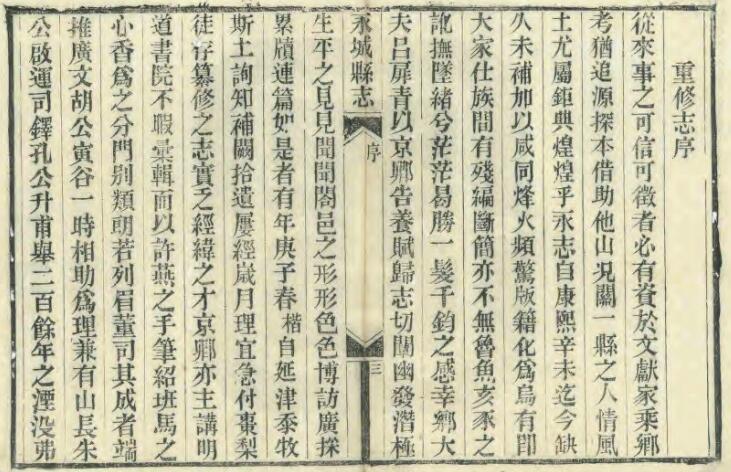 重修志序
從來事之可信可徵者必有資於文獻家乘鄉
考猶追源探本借助他山况關一縣之人情風
土尤屬鉅典煌煌乎永志自康熙辛未迄今缺
久未補加以咸同烽火頻驚版籍化爲烏有即
大家仕族間有殘編斷簡亦不無魯魚亥豕之
訛撫墜緒兮茫茫曷勝一髮千鈞之感幸鄉大
夫呂扉青以京卿告養賦歸志切闡幽發潛極
永城縣志
序
三
生平之見見聞聞閤邑之形形色色博訪廣採
累牘連篇如是者有年庚子春楷自延津忝牧
斯土詢知補闕拾遺屢經歲月理宜急付棗梨
徒存纂修之志實乏經緯之才京卿亦主講明
道書院不暇彙輯而以許燕之手筆紹班馬之
心香爲之分門别類朗若列眉董司其成者端
推廣文胡公寅谷一時相助爲理兼有山長朱
公啟運司鐸孔公升甫舉二百餘年之湮没弗